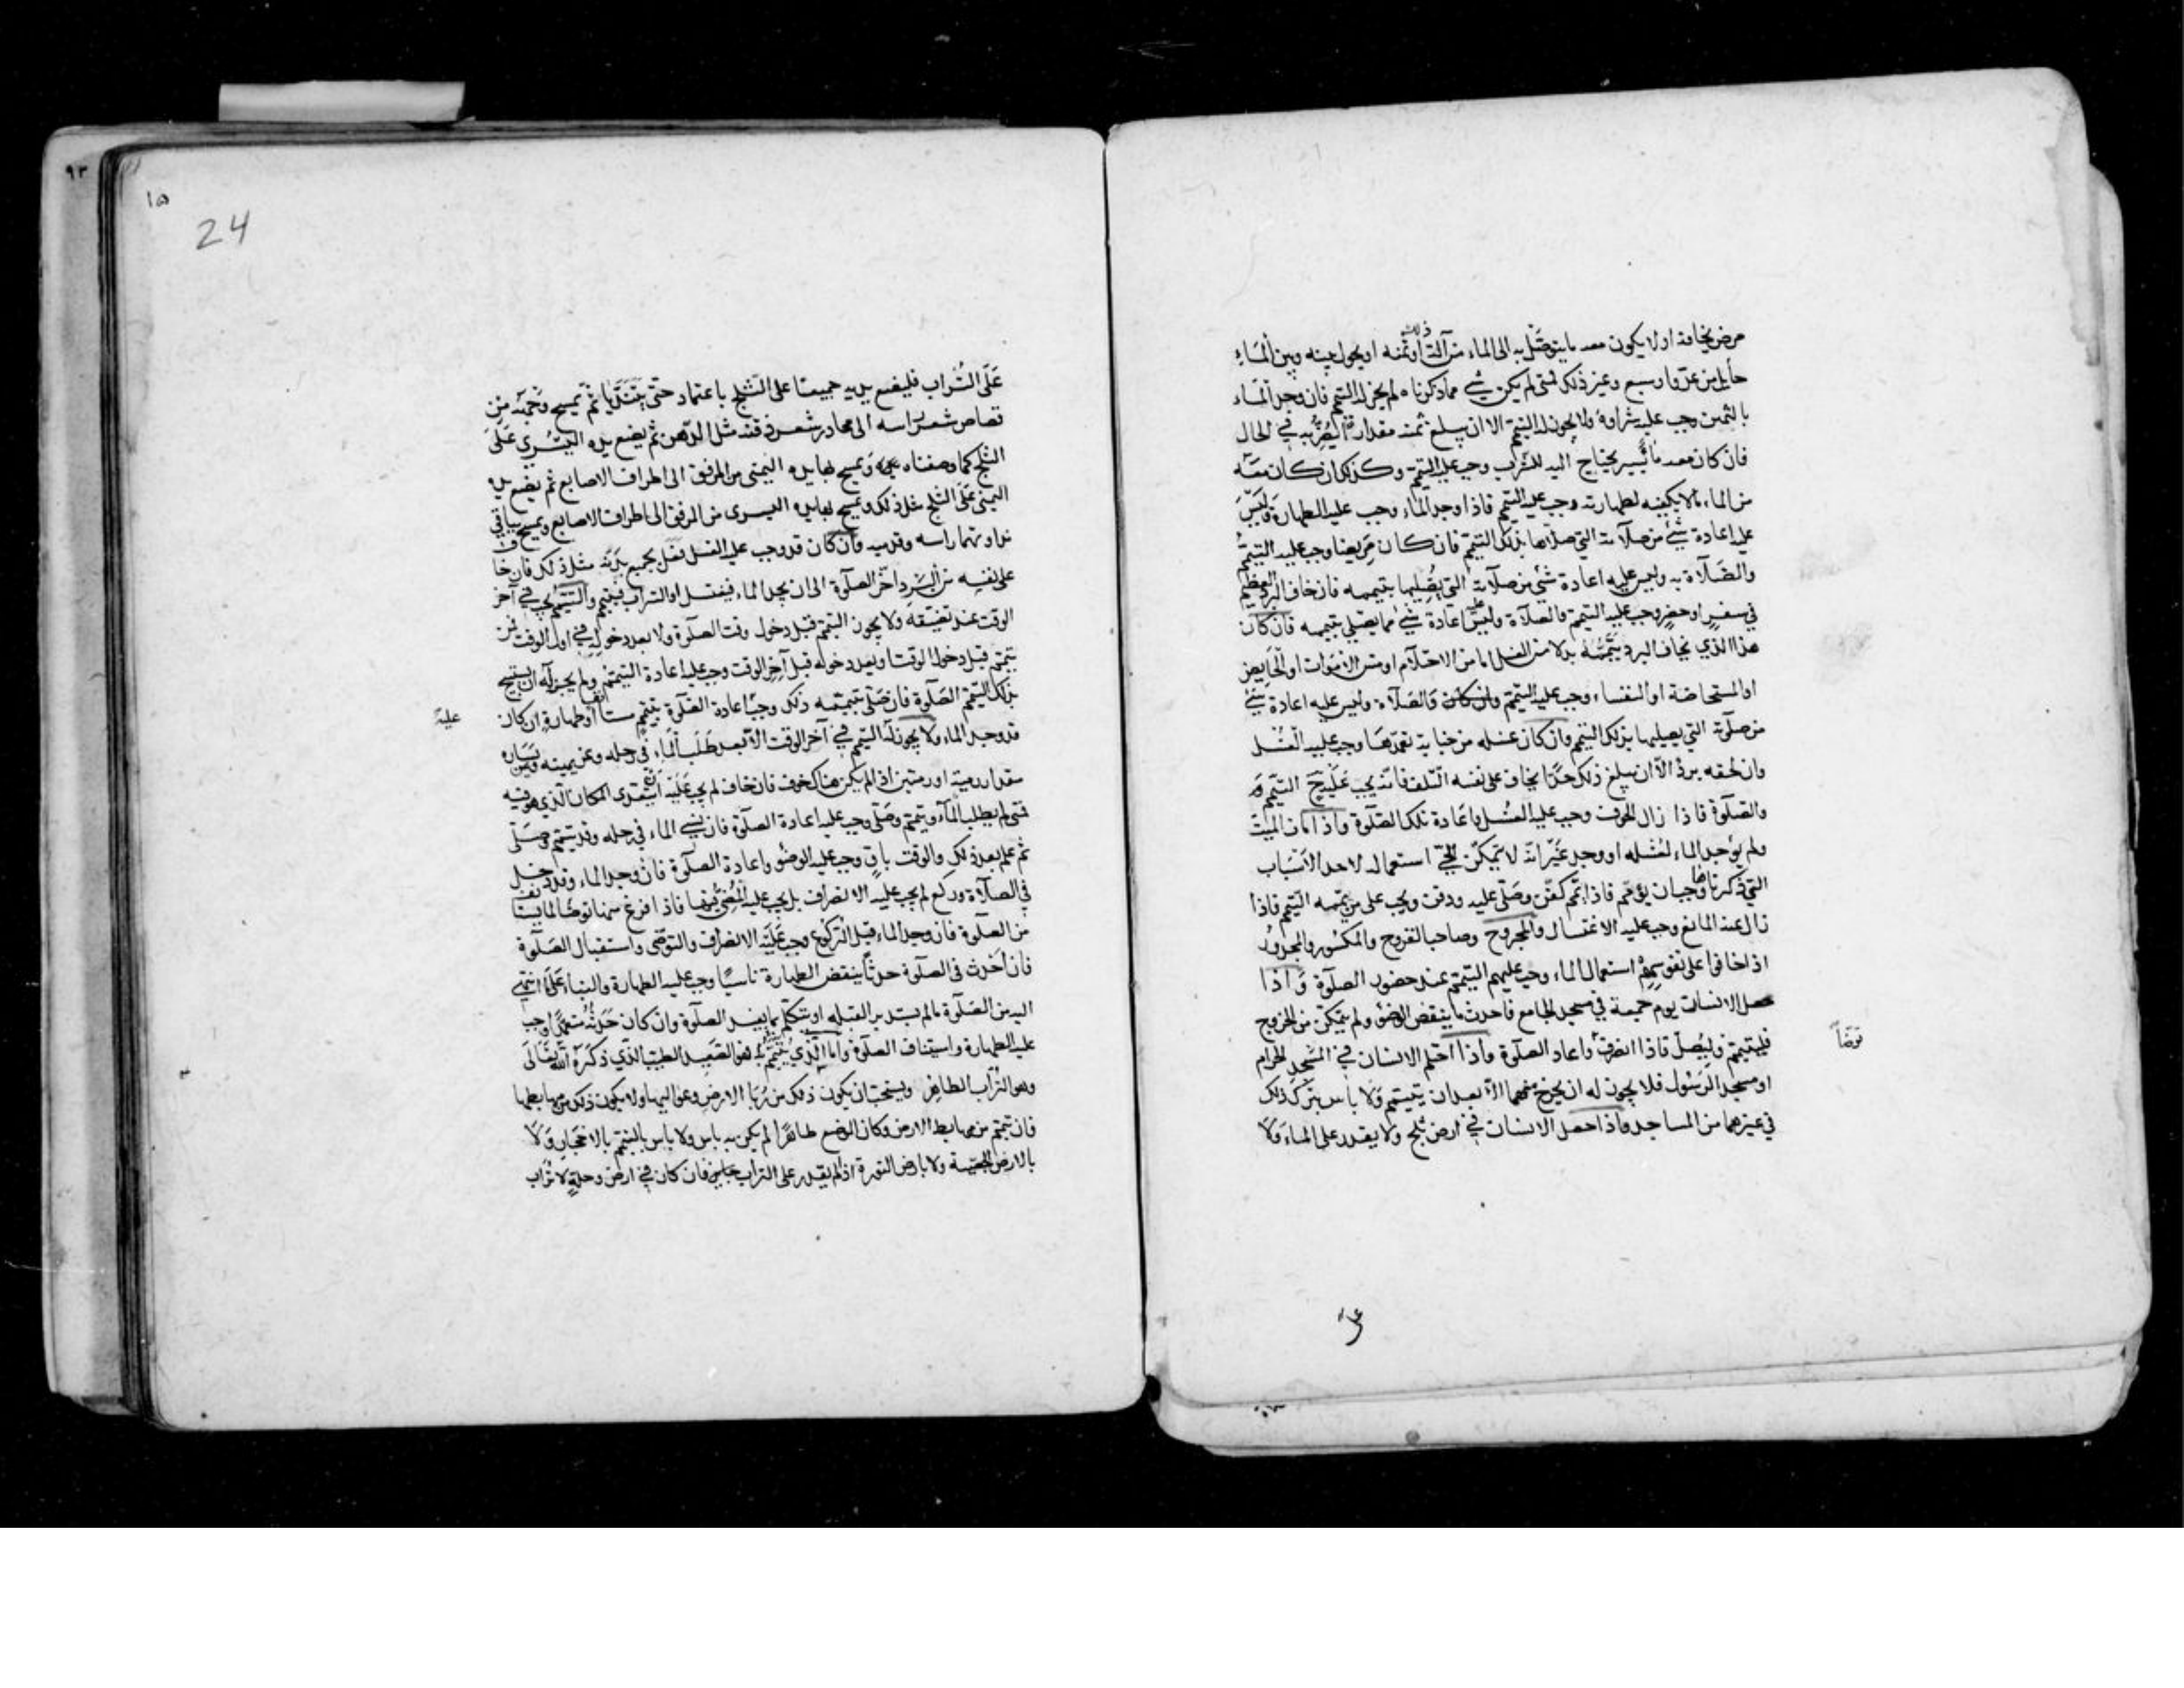 مرض يخافه او لا يكون معه ما يتوصّل به الى الماء من آلة ذلك او ثمنه او يحول بينه وبين الماءِ
حايل من عدوّ او سبع وغير ذلك فمتى لم يكن شيء مما ذكرناه لم يجز له التيمم فان وجد الماء
بالثمن وجب عليه شراوه ولا يجوز له التيمم الا ان يبلغ ثمنه مقدارًا يضرّ به في الحال
فان كان معه ماء يسير يحتاج اليه للشرب وجب عليه التيمّم وكذلك ان كان معه
من الماء ما لا يكفيه لطهارته وجب عليه التيمم فاذا وجد الماء وجب عليه الطهارة وليس
عليه اعادة شيء من صلاته التي صلاها بذلك التيمّم فان كان مريضا وجب عليه التيمّمُ
والصّلاة به وليس عليه اعادة شيء من صلاته التي يصليها بتيممه فان خاف البرد العظيم
في سفرٍ او حضرٍ وجب عليه التيمم والصلاة وليس عليه اعادة شيء مما يصلي بتيممه فان كان
هذا الذي يخاف البرد تيممه بدلا من الغسل اما من الاحتلام او مسّ الاموات او الحايض
او المستحاضة او النفساء وجب عليه التيمّم وان كان والصلاة وليس عليه اعادة شيءٍ
من صلوته التي يصليها بذلك التيمم وان كان غسله من جنابة تعمّدها وجب عليه الغسل
وان لحقه برد الّا ان يبلغ ذلك حدًّا يخاف على نفسه التلف فانه يجب عليه ح التيمّم
والصّلوة فاذا زال الخوف وجب عليه الغسل واعادة تلك الصّلوة واذا مات الميّت
ولم يوجد الماء لغسله او وجد غير انه لا يتمكّن من استعماله لاحد الاسباب
التي ذكرناها وجب ان يؤمّم فاذا يمّم كفّن وصلّى عليه ودفن ويجب على من يمّمه التيمّم فاذا
زال عنه المانع وجب عليه الاغتسال والمجروح وصاحب القروح والمكسور والمجدورُ
اذا خافوا على نفوسهم استعمال الماء وجب عليهم التيمّم عند حضور الصلوة واذا
حصل الانسان يوم جمعة في مسجد الجامع فاحدث ما ينقض الوضوء ولم يتمكّن من الخروج
فليتيمّم وليصلّ فاذا انصرف واعاد الصلوة واذا احتلم الانسان في المسجد الحرام
توضّأ
او مسجد الرّسول فلا يجوز له ان يخرج منهما الّا بعد ان يتيمّم ولا باس بترك ذلك
في غيرهما من المساجد واذا حصل الانسان في ارض ثلج ولا يقدر على الماء ولا
على
١٥
24
٩٣
عَلى التُراب فليضع يديه جميعًا على الثلج باعتماد حتى يتندّيا ثمّ يمسح وجهه من
قصاص شعر راسه الى محادر شعر ذقنه مثل الدّهن ثم يضع يده اليسرى عَلى
الثلج كما وصفناه ويمسح بها يده اليمنى من المرفق الى اطراف الاصابع ثم يضع يده
اليمنى على الثلج مثل ذلك ويمسح بها يده اليسرى من المرفق الى اطراف الاصابع ويمسح بباقي
نداوتهما راسه وقدميه وان كان قد وجب عليه الغسل فعل بجميع بدنه مثل ذلك فان خاف
على نفسه من البرد اخّر الصلوة الى ان يجد الماء فيغتسل او التراب فيتيمم والتيمّم يجب في آخر
الوقت عند تضيّقه ولا يجوز التيمّم قبل دخول وقت الصلوة ولا بعد دخوله في اول الوقت فمن
تيمّم قبل دخول الوقت او بعد دخوله قبل آخر الوقت وجب عليه اعادة التيمّم ولم يجز له ان يستبيح
بذلك التيمّم الصّلوة فان صلّى بتيمّمه ذلك وجب اعادة الصّلوة بتيمّم مستأنف او طهارة ان كان
عليه
قد وجد الماء ولا يجوز له التيمّم في آخر الوقت الّا بعد طلب الماء في رحله وعن يمينه ويساره
مقدار رمية او رميتين اذا لم يكن هناك خوف فان خاف لم يجب عليه ان يتعدى المكان الّذي هو فيه
فمتى لم يطلب المآء وتيمّم وصلّى وجب عليه اعادة الصلوة فان نسي الماء في رحله وقد تيمّم وصلّى
ثم علم بعد ذلك والوقت باقٍ وجب عليه الوضوء واعادة الصلوة فان وجد الماء وقد دخل
في الصلاة وركع لم يجب عليه الانصراف بل يجب عليه المضيّ فيها فاذا فرغ منها توضّا لما يستأنف
من الصلوة فان وجد الماء قبل الركوع وجب عليه الانصراف والتوضّى واستقبال الصّلوة
فان احدث في الصلوة حدثًا ينقض الطهارة ناسيًا وجب عليه الطهارة والبناء على ما انتهى
اليه من الصّلوة ما لم يستدبر القبله او يتكلم بما يفسد الصلوة وان كان حدثه متعمدًا وجب
عليه الطهارة واستيناف الصلوة وامّا الّذي يتيمّم به فهو الصّعيد الطيب الذّي ذكره الله تعالى
وهو التراب الطاهر ويستحبّ ان يكون ذلك من رُبَا الارض وعواليها ولا يكون ذلك من مهابطها
فان تيمّم من مهابط الارض وكان الموضع طاهرًا لم يكن به باس ولا باس بالتيمّم بالاحجار ولا
بالارض الجصّية ولا بارض النورة اذا لم يقدر على التراب فان كان في ارض وحلةٍ لا تراب